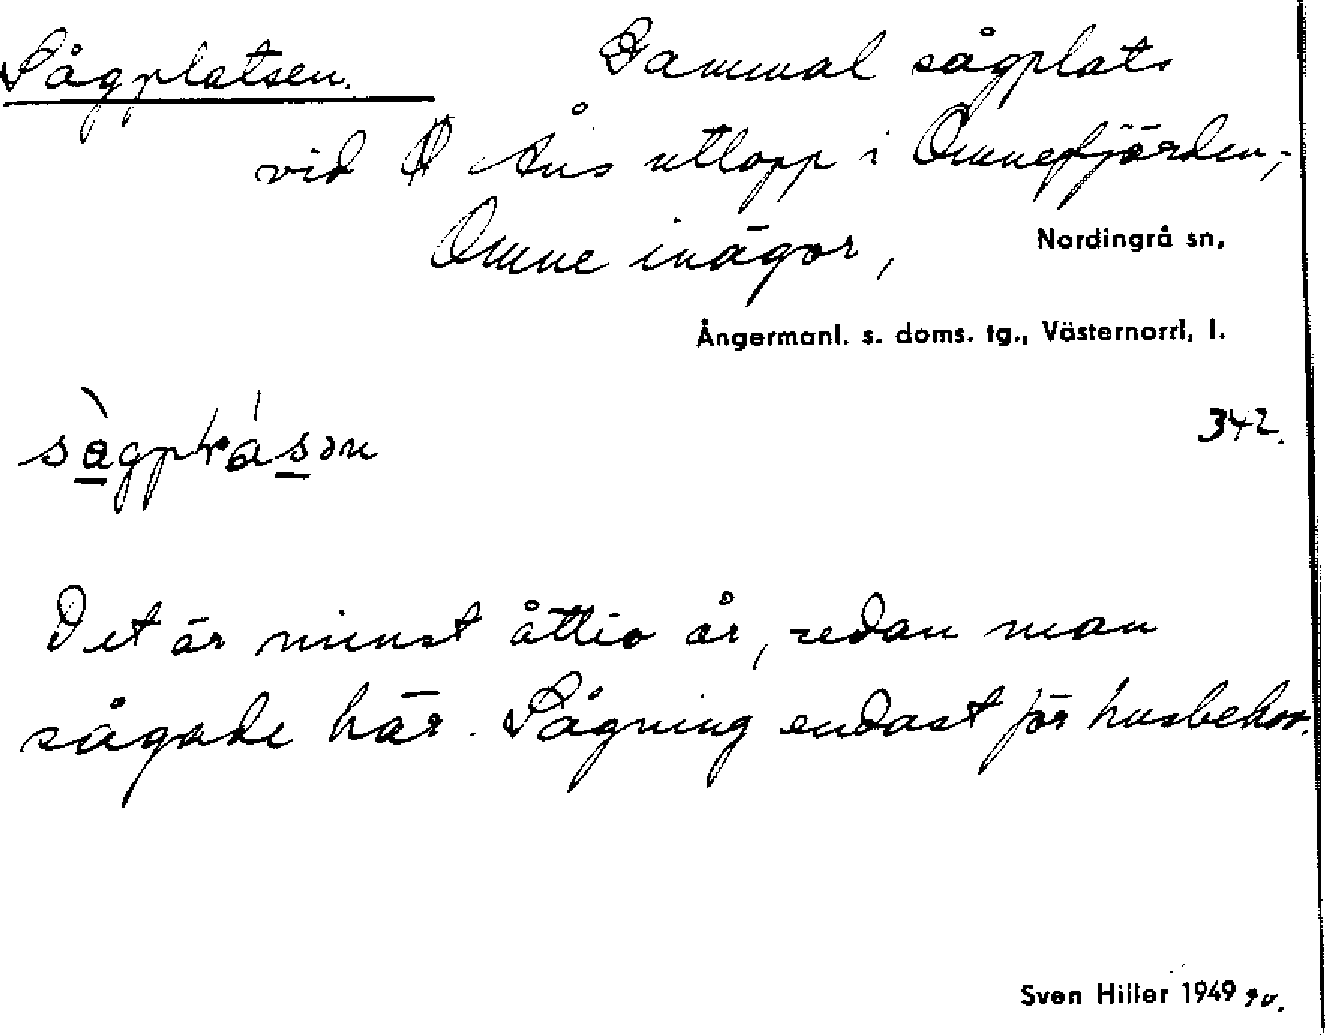 Sågplatsen. Gammal sågplats
vid Åns utlopp i Omnefjärden,
Omne inägor, Nordingrå sn,
Ångermanl. s. doms. tg., Västernorrl. l.
342.
Det är minst åttio år, sedan man
sågade här. Sågning endast för husbehov.
Sven Hiller 1949